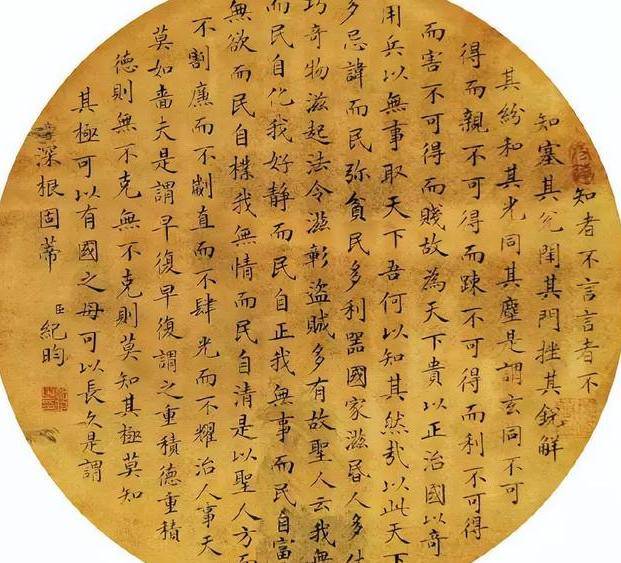 知者不言言者不
知塞其兌閉其門挫其銳解
其紛和其光同其塵是謂玄同不可
得而親不可得而踈不可得而利不可得
而害不可得而賤故為天下貴以正治國以奇
用兵以無事取天下吾何以知其然哉以此天下
多忌諱而民弥貧民多利器國家滋昏人多伎
巧奇物滋起法令滋彰盜賊多有故聖人云我無
而民自化我好靜而民自正我無事而民自富
無欲而民自樸我無情而民自清是以聖人方而
不割廉而不劌直而不肆光而不耀治人事天
莫如嗇夫是謂早復早復謂之重積德重積
德則無不克無不克則莫知其極莫知
其極可以有國之母可以長久是謂
深根固蒂
臣紀昀